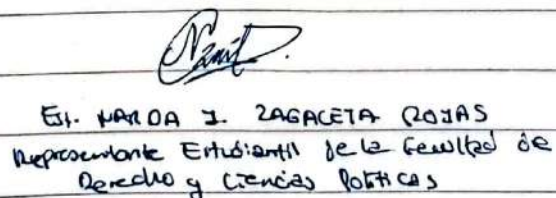 Est. NARDA J. ZAGACETA ROJAS
Representante Estudiantil de la Facultad de
Derecho y Ciencias Políticas